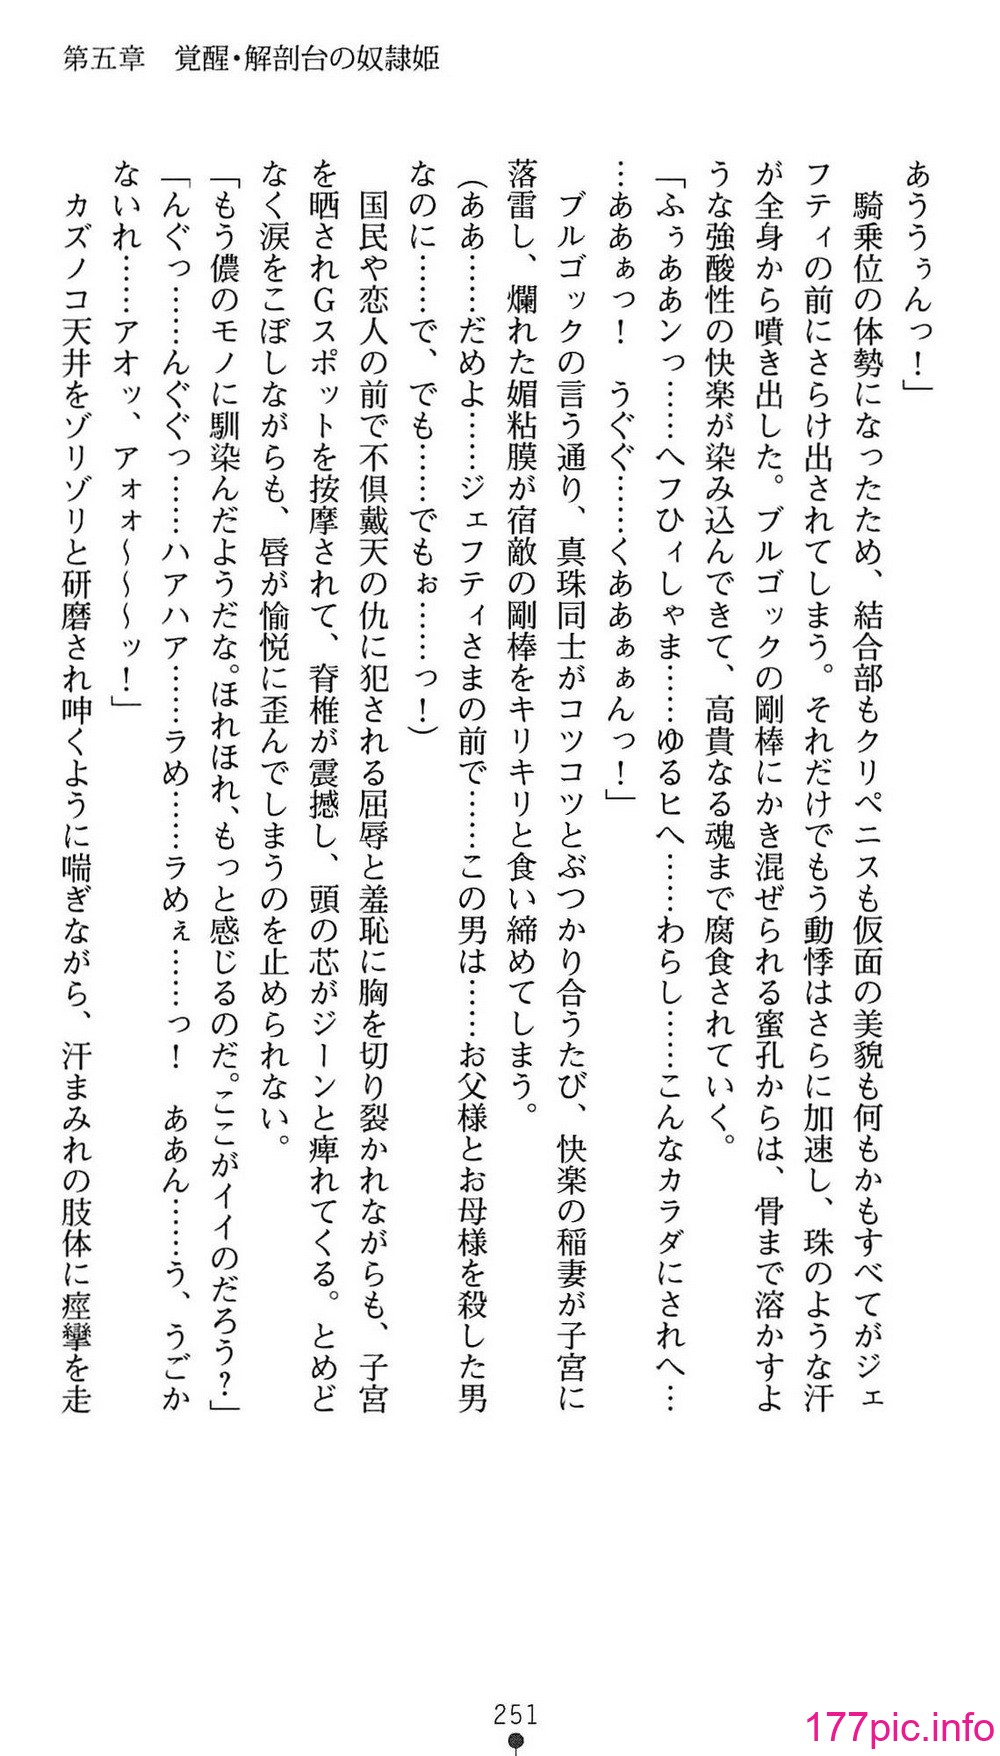 第五章　覚醒・解剖台の奴隷姫
あううぅんっ！」
騎乗位の体勢になったため、結合部もクリペニスも仮面の美貌も何もかもすべてがジェ
フティの前にさらけ出されてしまう。それだけでもう動悸はさらに加速し、珠のような汗
が全身から噴き出した。ブルゴックの剛棒にかき混ぜられる蜜孔からは、骨まで溶かすよ
うな強酸性の快楽が染み込んできて、高貴なる魂まで腐食されていく。
「ふぅああンっ……へフひィしゃま……ゆるヒへ……わらし……こんなカラダにされへ…
…ああぁっ！　うぐぐ……くああぁぁんっ！」
ブルゴックの言う通り、真珠同士がコツコツとぶつかり合うたび、快楽の稲妻が子宮に
落雷し、爛れた媚粘膜が宿敵の剛棒をキリキリと食い締めてしまう。
（ああ……だめよ……ジェフティさまの前で……この男は……お父様とお母様を殺した男
なのに……で、でも……でもぉ……っ！）
国民や恋人の前で不倶戴天の仇に犯される屈辱と羞恥に胸を切り裂かれながらも、子宮
を晒されＧスポットを按摩されて、脊椎が震撼し、頭の芯がジーンと痺れてくる。とめど
なく涙をこぼしながらも、唇が愉悦に歪んでしまうのを止められない。
「もう儂のモノに馴染んだようだな。ほれほれ、もっと感じるのだ。ここがイイのだろう？」
「んぐっ……んぐぐっ……ハアハア……ラめ……ラめぇ……っ！　ああん……う、うごか
ないれ……アオッ、アォォ～～～ッ！」
カズノコ天井をゾリゾリと研磨され呻くように喘ぎながら、汗まみれの肢体に痙攣を走
251
177pic.info